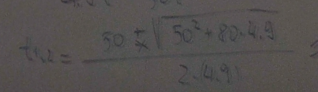 t₁,₂ = (50 ± √(50² + 80·4.9)) / (2·(4.9)) =